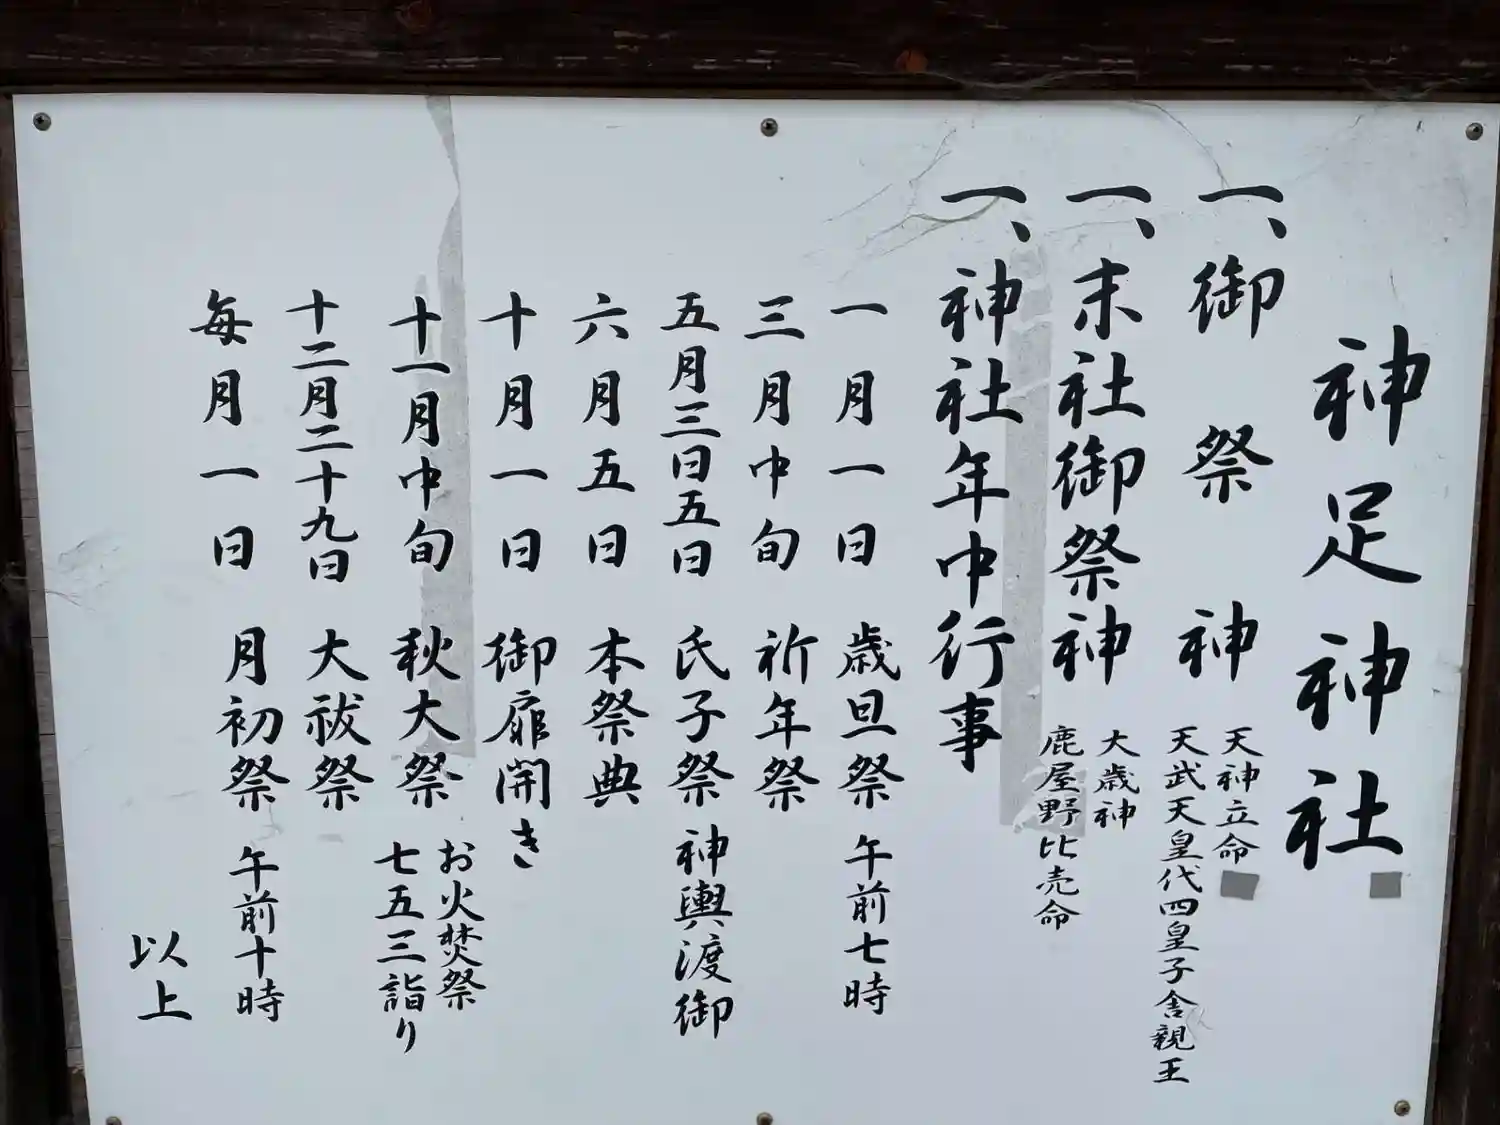 神足神社
一、御祭神 天神立命
天武天皇代四皇子舎親王
一、末社御祭神 大歳神
鹿屋野比売命
一、神社年中行事
一月一日 歳旦祭 午前七時
三月中旬 祈年祭
五月三日五日 氏子祭 神輿渡御
六月五日 本祭典
十月一日 御扉開き
十一月中旬 秋大祭 お火焚祭
七五三詣り
十二月二十九日 大祓祭
毎月一日 月初祭 午前十時
以上